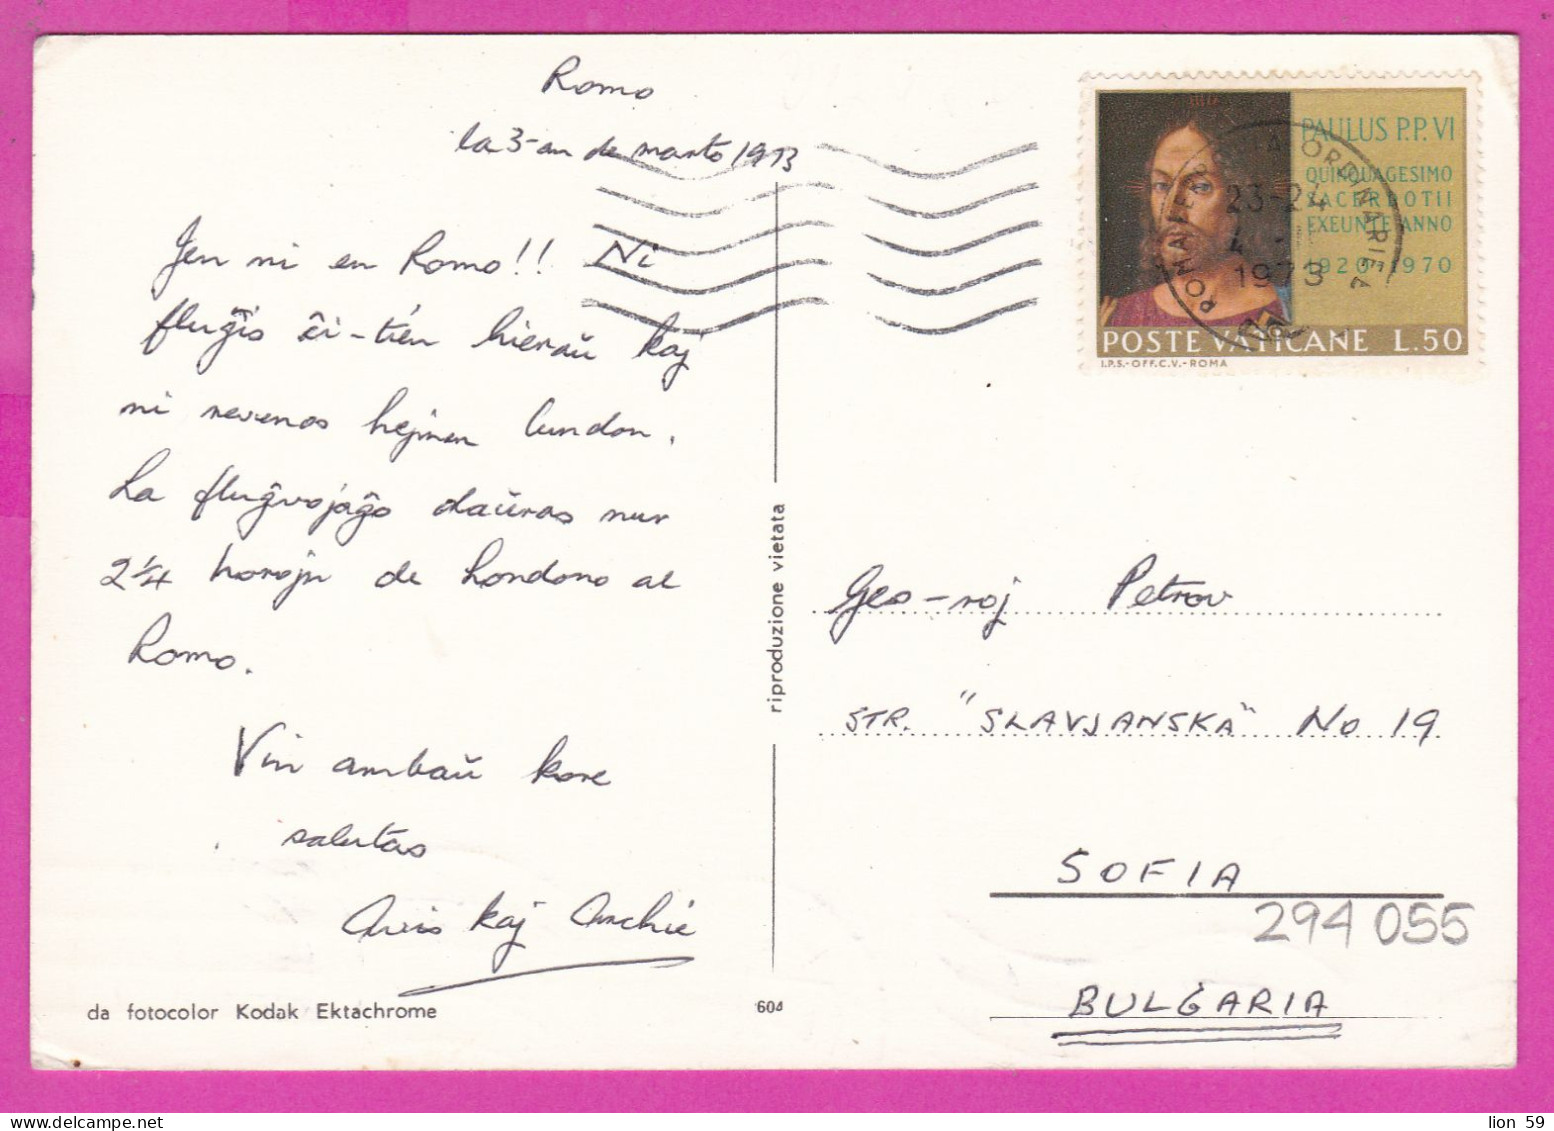 Romo
la 3-an de marto 1973
Jen ni en Romo!! Ni
fluĝis ĉi-tien hieraŭ kaj
ni revenos hejmen lundon.
La flugvojaĝo daŭras nur
2 1/4 horojn de Londono al
Romo.
Vin ambaŭ kore
salutas
kaj Archie
da fotocolor Kodak Ektachrome
604
riproduzione vietata
PAULUS P.P. VI
QUINQUAGESIMO
SACERDOTII
EXEUNTE ANNO
1920-1970
POSTE VATICANE L.50
I.P.S.-OFF.C.V.-ROMA
23-24
1973
Geo-roj Petrov
STR. "SLAVJANSKA" No 19
SOFIA
294 055
BULGARIA
lion 59